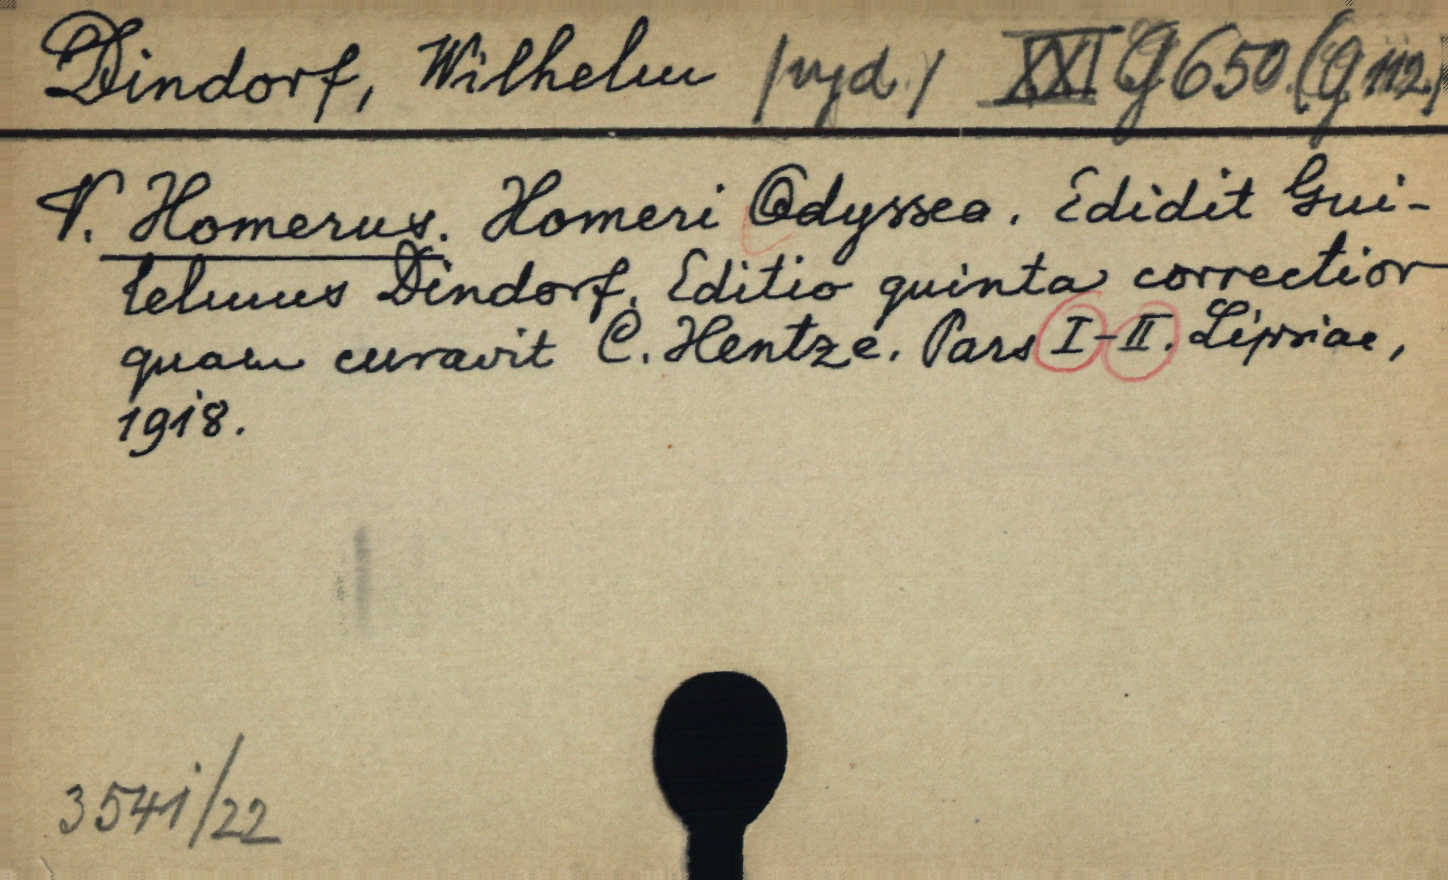 Dindorf, Wilhelm /vyd./ XXI G 650. (G 112.)
V. Homerus. Homeri Odyssea. Edidit Gui-
lelmus Dindorf. Editio quinta correctior
quam curavit C. Hentze. Pars I-II. Lipsiae,
1918.
3541/22